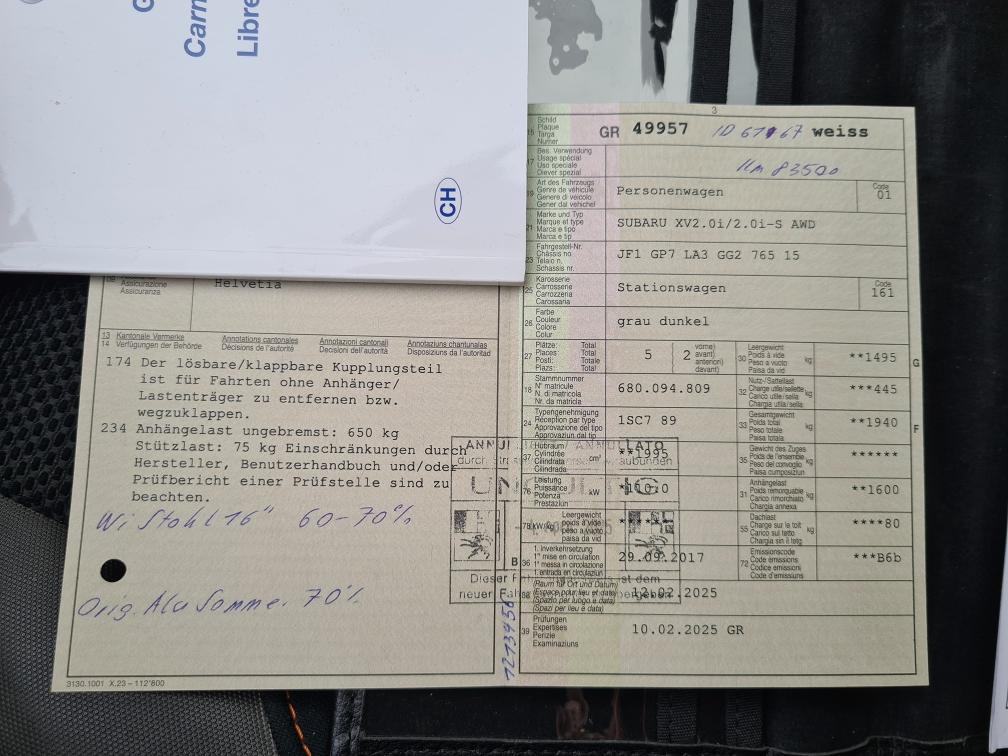 Carn
Libre
CH
3
Schild
Plaque
Targa
Numer
GR 49957 weiss
Km 83500
Bes. Verwendung
Usage spécial
Uso speciale
Diever spezial
Art des Fahrzeugs
Genre de véhicule
Genere di veicolo
Gener dal vehichel
Personenwagen
Code
01
21 Marke und Typ
Marque et type
Marca e tipo
Marca e tip
SUBARU XV2.0i/2.0i-S AWD
23 Fahrgestell-Nr.
Châssis no
Telaio n.
Schassis nr.
JF1 GP7 LA3 GG2 765 15
25 Karosserie
Carrosserie
Carrozzeria
Carossaria
Stationswagen
Code
161
26 Farbe
Couleur
Colore
Colur
grau dunkel
27 Plätze: Total
Places: Total
Posti: Totale
Plazs: Total
5 2 vorne)
avant)
anteriori)
davant)
30 Leergewicht
Poids à vide
Peso a vuoto
Paisa da vid
kg **1495 G
18 Stammnummer
N° matricule
N. di matricola
Nr. da matricla
680.094.809
32 Nutz-/Sattellast
Charge utile/sellette
Carico utile/sella
Chargia utila/sella
kg ***445
24 Typengenehmigung
Réception par type
Approvazione del tipo
Approvaziun dal tip
1SC7 89
33 Gesamtgewicht
Poids total
Peso totale
Paisa totala
kg **1940 F
37 Hubraum
Cylindrée
Cilindrata
Cilindrada
cm³ **1995
35 Gewicht des Zuges
Poids de l'ensemble
Peso del convoglio
Paisa cumposiziun
kg ******
76 Leistung
Puissance
Potenza
Prestaziun
kW
31 Anhängelast
Poids remorquable
Carico rimorchiato
Chargia annexa
kg **1600
78 kW/kg Leergewicht
poids à vide
peso a vuoto
paisa da vid
55 Dachlast
Charge sur le toit
Carico sul tetto
Chargia sin il tetg
kg ****80
B 36 1. Inverkehrsetzung
1re mise en circulation
1a messa in circolazione
1. entrada en circulaziun
29.09.2017
72 Emissionscode
Code d'émissions
Codice emissioni
Code d'emissiuns
***B6b
(Raum für Ort und Datum)
(Espace pour lieu et date)
(Spazio per luogo e data)
(Spazi per lieu e data)
12.02.2025
39 Prüfungen
Expertises
Perizie
Examinaziuns
10.02.2025 GR
Assicurazione
Assicuranza
Helvetia
13 Kantonale Vermerke Annotations cantonales Annotazioni cantonali Annotaziuns chantunalas
14 Verfügungen der Behörde Décisions de l'autorité Decisioni dell'autorità Disposiziuns da l'autoritad
174 Der lösbare/klappbare Kupplungsteil
ist für Fahrten ohne Anhänger/
Lastenträger zu entfernen bzw.
wegzuklappen.
234 Anhängelast ungebremst: 650 kg
Stützlast: 75 kg Einschränkungen durch
Hersteller, Benutzerhandbuch und/oder
Prüfbericht einer Prüfstelle sind zu
beachten.
Wi Stahl 16" 60-70%
Orig. Alu Sommer 70%
3130.1001 X.23 – 112'800